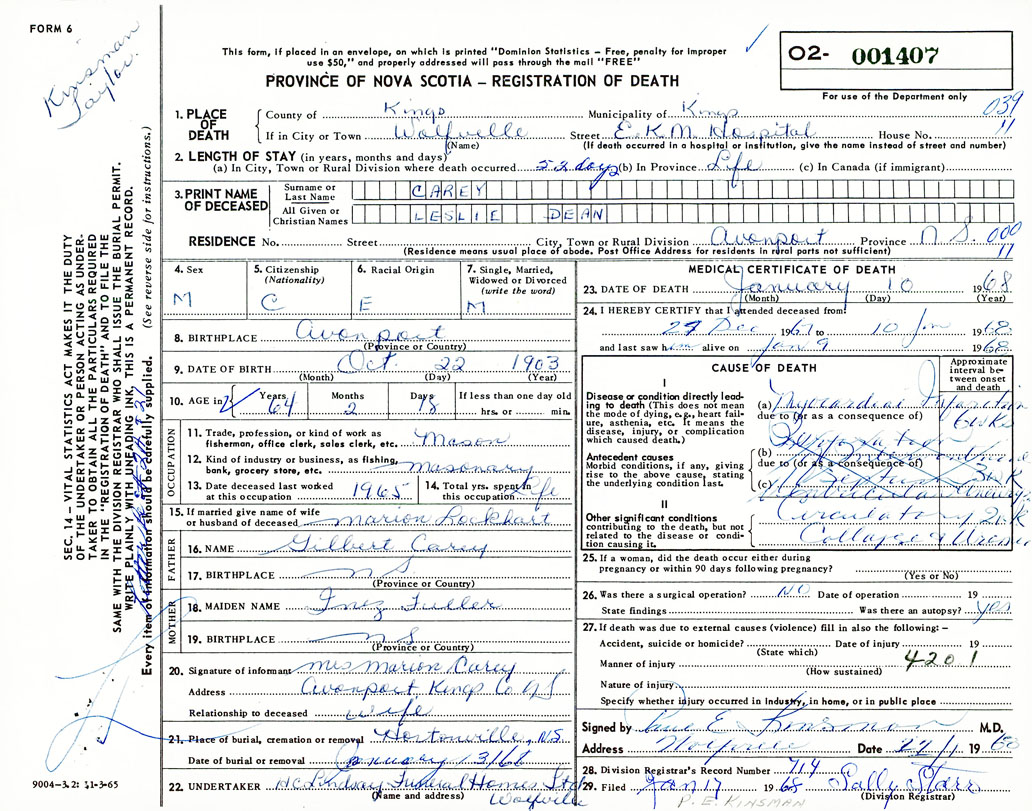 FORM 6
Kinsman
Taylor
This form, if placed in an envelope, on which is printed "Dominion Statistics – Free, penalty for improper
use $50," and properly addressed will pass through the mail "FREE"
PROVINCE OF NOVA SCOTIA – REGISTRATION OF DEATH
02- 001407
For use of the Department only
039
11
SEC. 14 – VITAL STATISTICS ACT MAKES IT THE DUTY
OF THE UNDERTAKER OR PERSON ACTING AS UNDER-
TAKER TO OBTAIN ALL THE PARTICULARS REQUIRED
IN THE "REGISTRATION OF DEATH" AND TO FILE THE
SAME WITH THE DIVISION REGISTRAR WHO SHALL ISSUE THE BURIAL PERMIT.
WRITE PLAINLY WITH UNFADING INK. THIS IS A PERMANENT RECORD.
Every item of information should be carefully supplied. (See reverse side for instructions.)
1. PLACE OF DEATH
County of Kings Municipality of Kings
If in City or Town Wolfville Street E.K.M. Hospital House No.
(Name) (If death occurred in a hospital or institution, give the name instead of street and number)
2. LENGTH OF STAY (in years, months and days)
(a) In City, Town or Rural Division where death occurred 52 days (b) In Province Life (c) In Canada (if immigrant)
3. PRINT NAME OF DECEASED
Surname or Last Name CAREY
All Given or Christian Names LESLIE DEAN
RESIDENCE No. Street City, Town or Rural Division Avonport Province N S. 000
(Residence means usual place of abode. Post Office Address for residents in rural parts not sufficient) 11
4. Sex M
5. Citizenship (Nationality) C
6. Racial Origin E
7. Single, Married, Widowed or Divorced (write the word) M
8. BIRTHPLACE Avonport
(Province or Country)
9. DATE OF BIRTH Oct. 22 1903
(Month) (Day) (Year)
10. AGE in Years 64 Months 2 Days 18 If less than one day old hrs. or min.
OCCUPATION
11. Trade, profession, or kind of work as
fisherman, office clerk, sales clerk, etc. Mason
12. Kind of industry or business, as fishing,
bank, grocery store, etc. Masonary
13. Date deceased last worked at this occupation 1965
14. Total yrs. spent in this occupation Life
15. If married give name of wife
or husband of deceased Marion Lockhart
FATHER
16. NAME Gilbert Carey
17. BIRTHPLACE N S
(Province or Country)
MOTHER
18. MAIDEN NAME Inez Fuller
19. BIRTHPLACE N S
(Province or Country)
20. Signature of informant Mrs Marion Carey
Address Avonport, Kings Co N S
Relationship to deceased wife
21. Place of burial, cremation or removal Hortonville, N.S.
Date of burial or removal January 13/68
22. UNDERTAKER H.C. Lindsay Funeral Homes Ltd
(Name and address) Wolfville
9004-3.2: 11-3-65
MEDICAL CERTIFICATE OF DEATH
23. DATE OF DEATH January 10 1968
(Month) (Day) (Year)
24. I HEREBY CERTIFY that I attended deceased from:
29 Dec 1967 to 10 Jan 1968
and last saw him alive on Jan 9 1968
CAUSE OF DEATH
Approximate interval between onset and death
I
Disease or condition directly lead-
ing to death (This does not mean
the mode of dying, e.g., heart fail-
ure, asthenia, etc. It means the
disease, injury, or complication
which caused death.)
(a) Myocardial Infarction
due to (or as a consequence of) 6 wks
Antecedent causes
Morbid conditions, if any, giving
rise to the above cause, stating
the underlying condition last.
(b)
due to (or as a consequence of) 3 wk
(c)
II
Other significant conditions
contributing to the death, but not
related to the disease or condi-
tion causing it.
Circulatory 2 wk
Collapse & Uremia
25. If a woman, did the death occur either during
pregnancy or within 90 days following pregnancy?
(Yes or No)
26. Was there a surgical operation? NO Date of operation 19
State findings Was there an autopsy? yes
27. If death was due to external causes (violence) fill in also the following: –
Accident, suicide or homicide? Date of injury 19
(State which)
Manner of injury 4201
(How sustained)
Nature of injury
Specify whether injury occurred in industry, in home, or in public place
Signed by Paul E. Kinsman M.D.
Address Wolfville Date 22/1 1968
28. Division Registrar's Record Number 714
29. Filed Jan 17 1968 Sally Starr
(Division Registrar)
P. E. KINSMAN